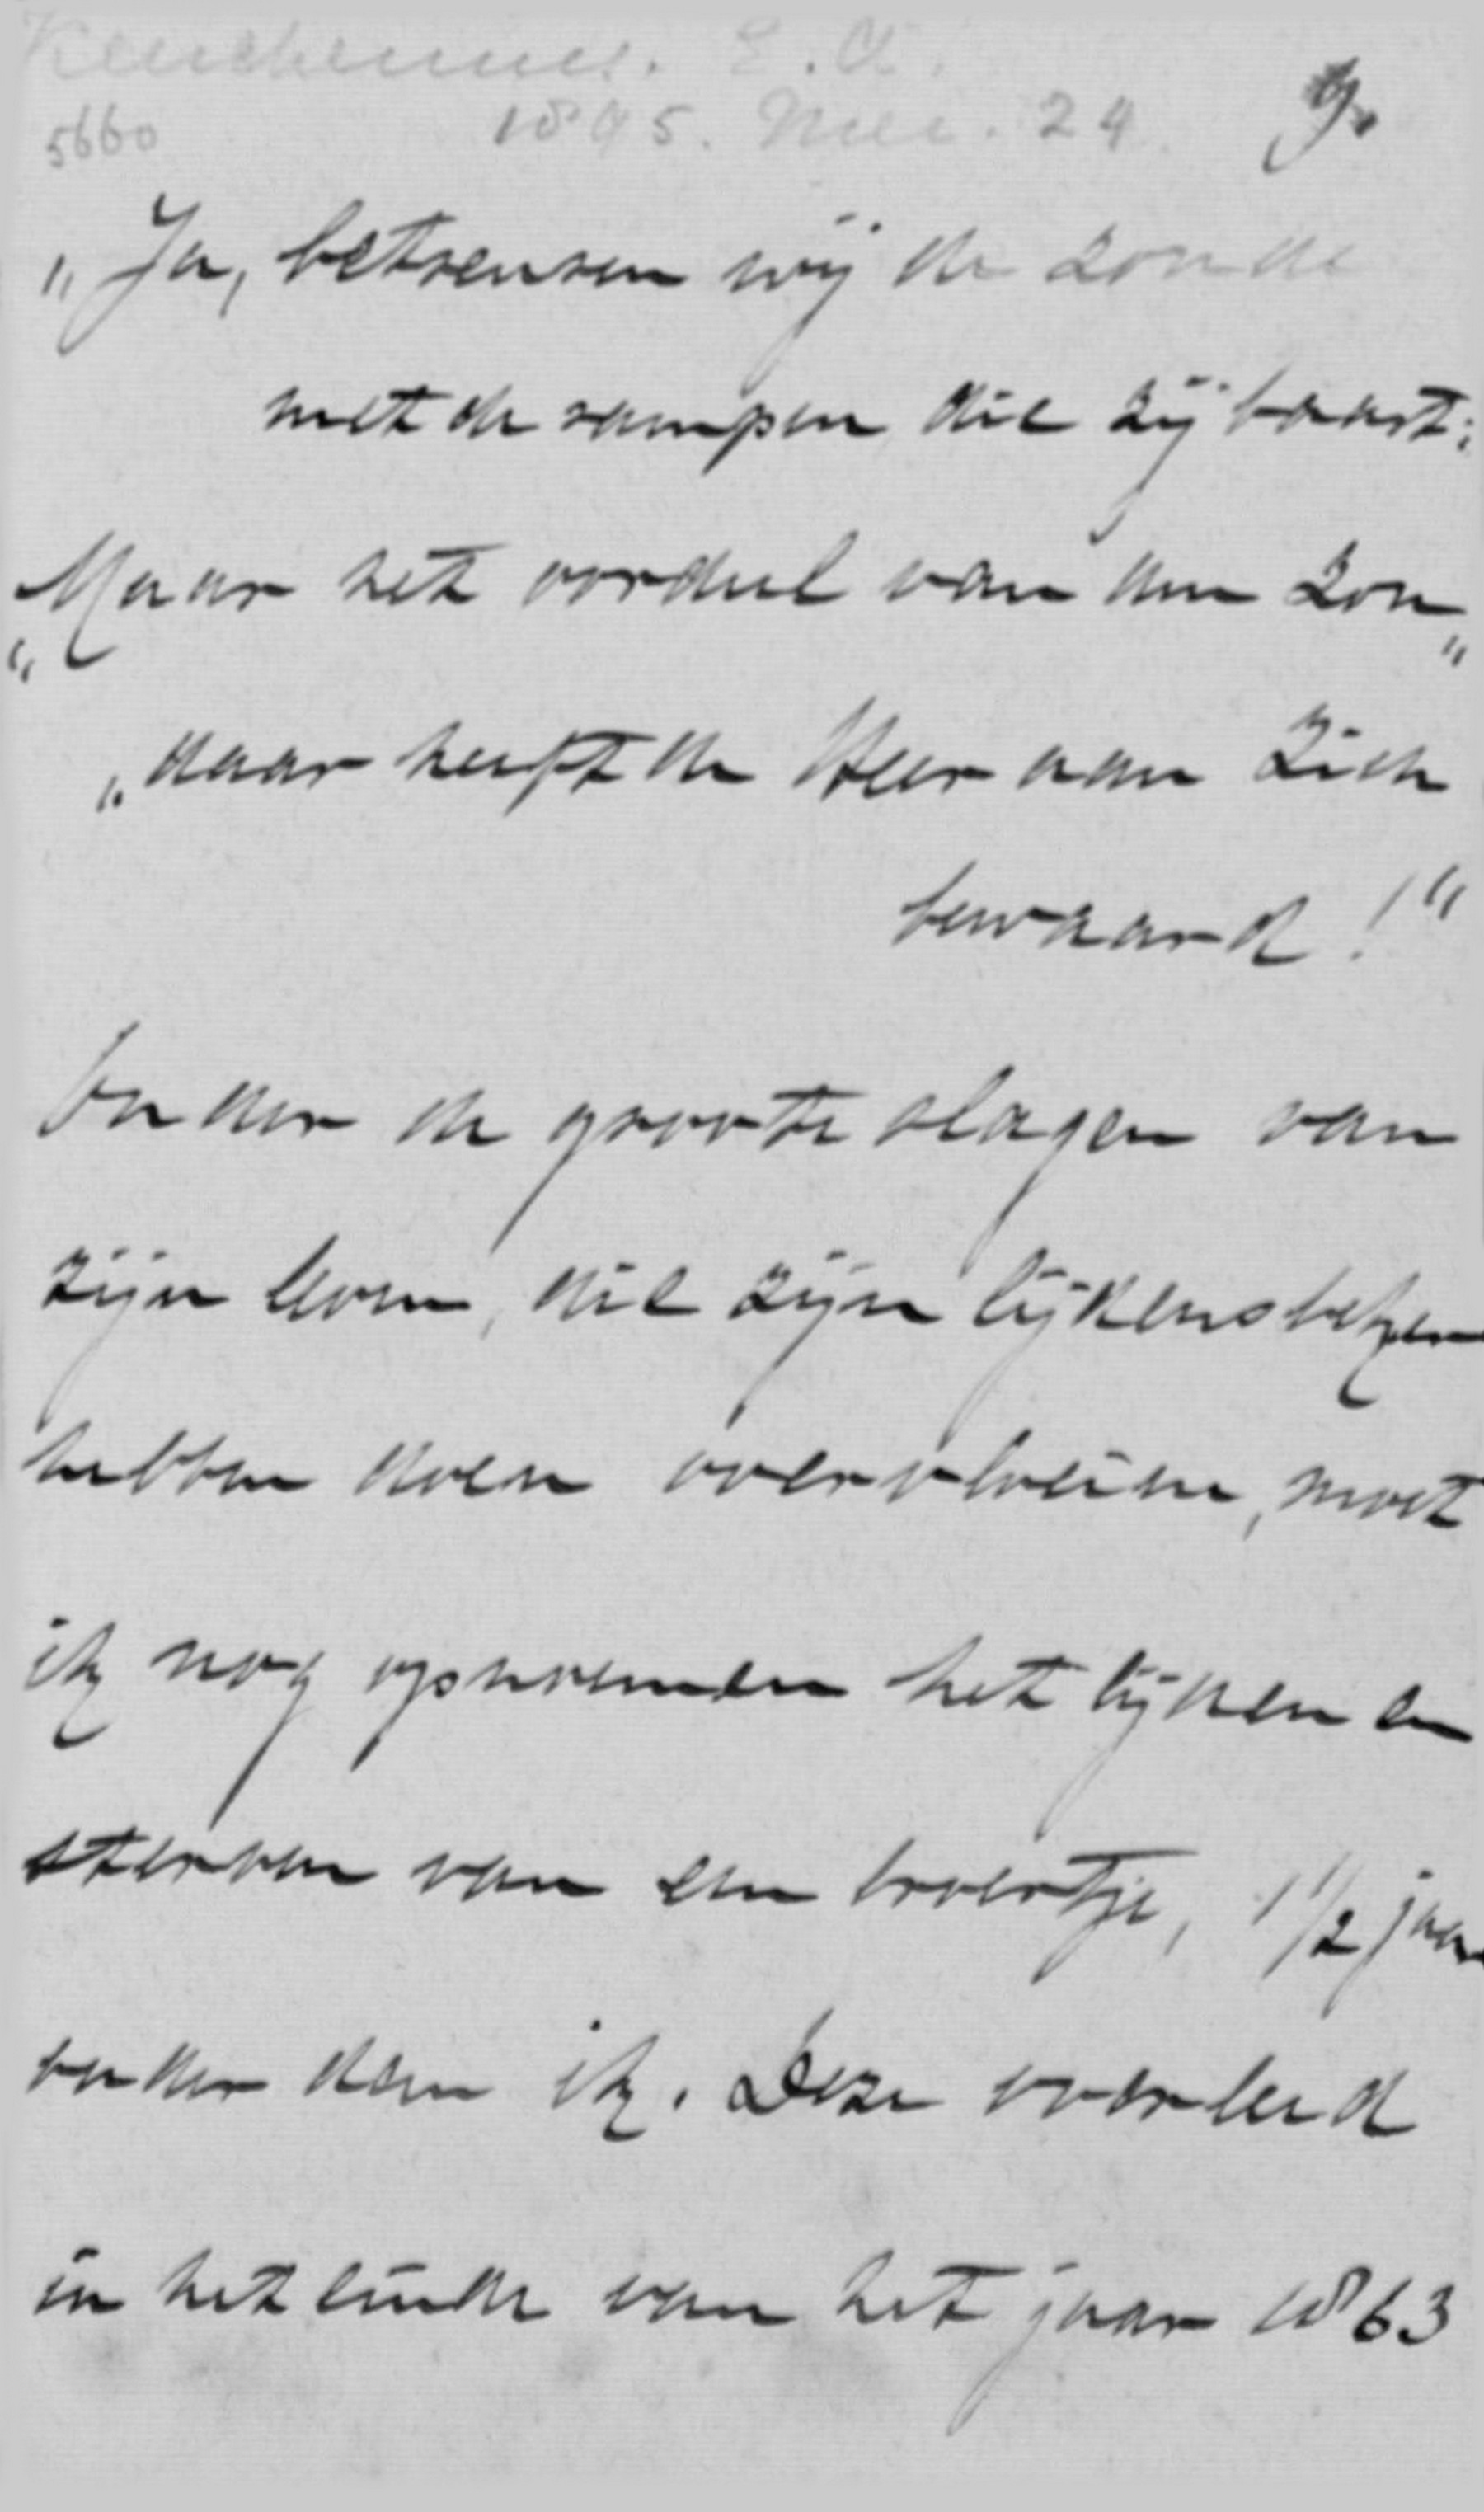 Keuchenius. E. A.
1895. Mei. 24 9.
5660
"Ja, betreuren wij de zonde
met de rampen die zij baart:
"Maar het oordeel van den zon"
"daar heeft de Heer aan zich
bewaard!"
Onder de groote slagen van
zijn leven, die zijn lijdensbeker
hebben doen overvloeien, moet
ik nog opnoemen het lijden en
sterven van een broertje, 1 1/2 jaar
ouder dan ik. Deze overleed
in het einde van het jaar 1863